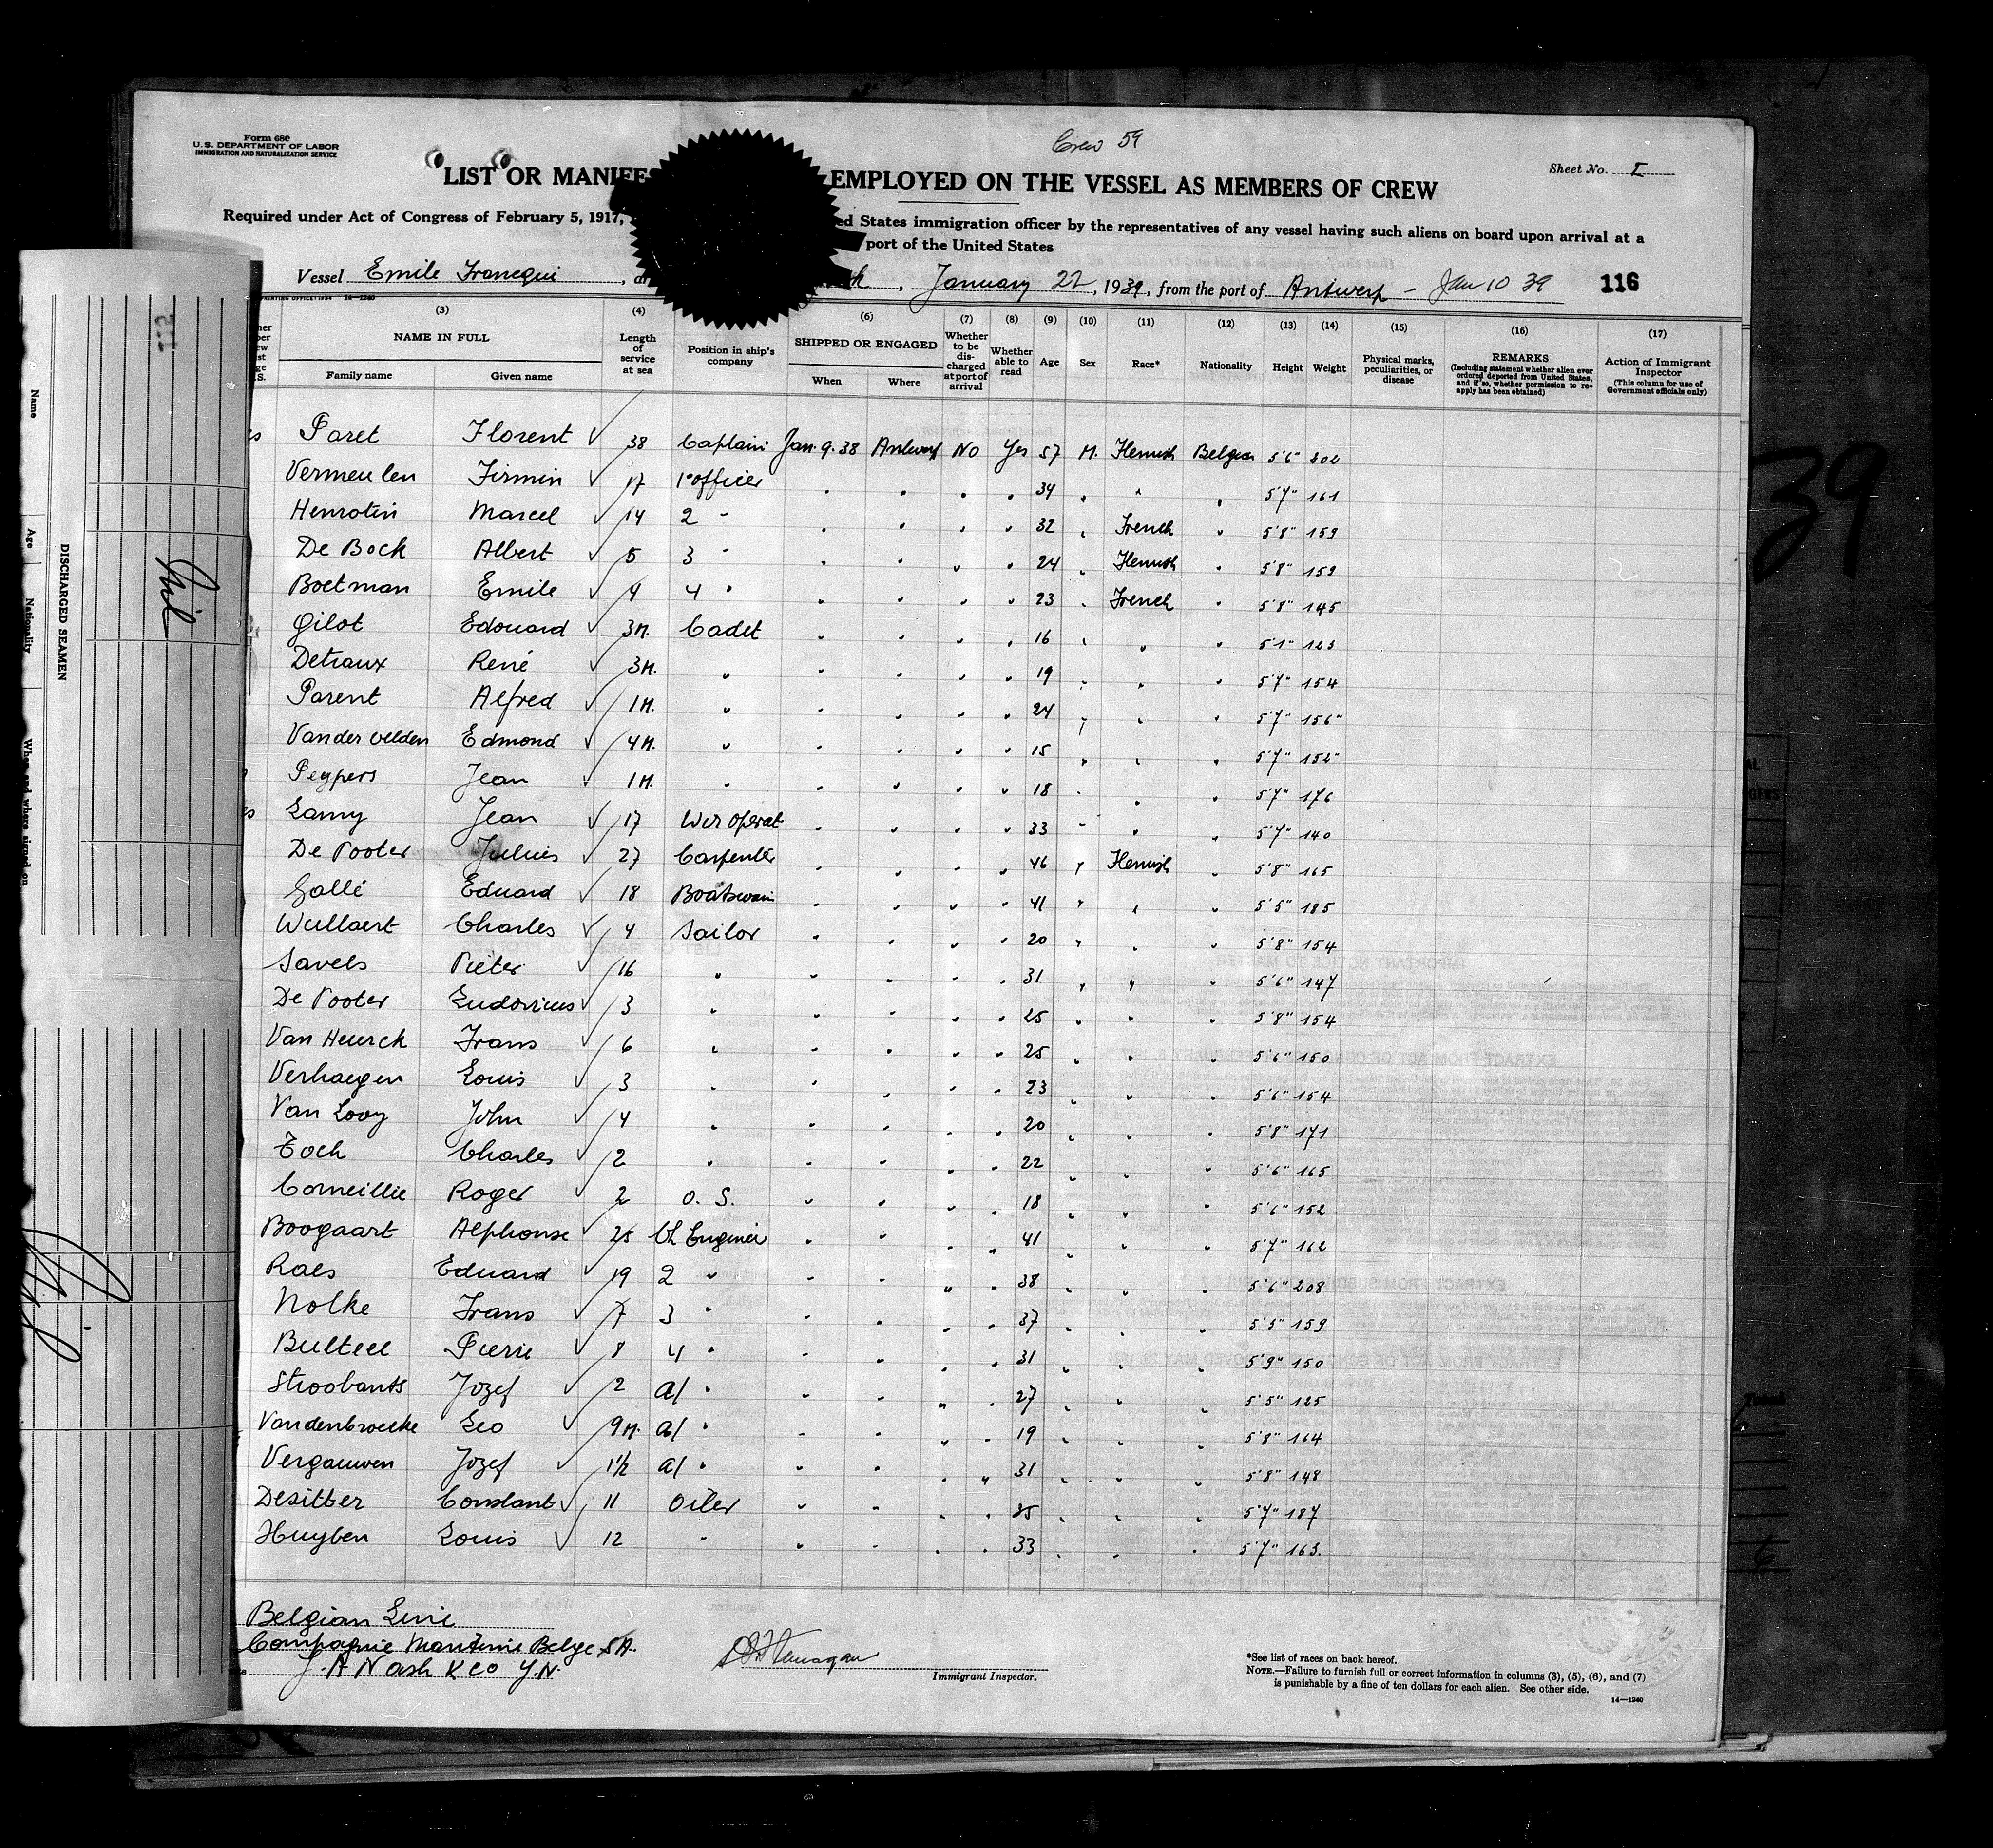 Crew 59
Form 680
U.S. DEPARTMENT OF LABOR
IMMIGRATION AND NATURALIZATION SERVICE
Sheet No. I
LIST OR MANIFES EMPLOYED ON THE VESSEL AS MEMBERS OF CREW
Required under Act of Congress of February 5, 1917, ed States immigration officer by the representatives of any vessel having such aliens on board upon arrival at a
port of the United States
Vessel Emile Francqui, January 22, 1939, from the port of Antwerp - Jan 10 39 116
(3) (4) (6) (7) (8) (9) (10) (11) (12) (13) (14) (15) (16) (17)
NAME IN FULL Length of service at sea Position in ship's company SHIPPED OR ENGAGED Whether to be discharged at port of arrival Whether able to read Age Sex Race* Nationality Height Weight Physical marks, peculiarities, or disease REMARKS (Including statement whether alien ever ordered deported from United States, and if so, whether permission to re-apply has been obtained) Action of Immigrant Inspector (This column for use of Government officials only)
Family name Given name When Where
Paret Florent ✓ 38 Captain Jan. 9. 38 Antwerp No Yes 57 M. Flemish Belgian 5'6" 202
Vermeulen Firmin ✓ 17 1° officer " " " " 34 " " " 5'7" 161
Henrotin Marcel ✓ 14 2 " " " " " 32 " French " 5'8" 159
De Bock Albert ✓ 5 3 " " " " " 24 " Flemish " 5'8" 159
Boetman Emile ✓ 4 4 " " " " " 23 " French " 5'8" 145
Gilot Edouard ✓ 3M. Cadet " " " " 16 " " " 5'1" 123
Detraux René ✓ 3M. " " " " " 19 " " " 5'7" 154
Parent Alfred ✓ 1M. " " " " " 24 " " " 5'7" 156"
Vandervelden Edmond ✓ 4M. " " " " " 15 " " " 5'7" 152"
Peypers Jean ✓ 1M. " " " " " 18 " " " 5'7" 176
Lamy Jean ✓ 17 Wir operat " " " " 33 " " " 5'7" 140
De Pooter Julius ✓ 27 Carpenter " " " " 46 " Flemish " 5'8" 165
Gallé Eduard ✓ 18 Boatswain " " " " 41 " " " 5'5" 185
Wullaert Charles ✓ 4 Sailor " " " " 20 " " " 5'8" 154
Savels Pieter ✓ 16 " " " " " 31 " " " 5'6" 147
De Pooter Ludovicus ✓ 3 " " " " " 25 " " " 5'8" 154
Van Heurck Frans ✓ 6 " " " " " 25 " " " 5'6" 150
Verhaegen Louis ✓ 3 " " " " " 23 " " " 5'6" 154
Van Looy John ✓ 4 " " " " " 20 " " " 5'8" 171
Toch Charles ✓ 2 " " " " " 22 " " " 5'6" 165
Corneillie Roger ✓ 2 O. S. " " " " 18 " " " 5'6" 152
Boogaart Alphonse ✓ 25 Ch Engineer " " " " 41 " " " 5'7" 162
Raes Eduard ✓ 19 2 " " " " " 38 " " " 5'6" 208
Nolke Frans ✓ 7 3 " " " " " 37 " " " 5'5" 159
Bulteel Pierre ✓ 8 4 " " " " " 31 " " " 5'9" 150
Stroobants Jozef ✓ 2 a/ " " " " " 27 " " " 5'5" 125
Vandenbroecke Leo ✓ 9M. a/ " " " " " 19 " " " 5'8" 164
Vergauwen Jozef ✓ 1½ a/ " " " " " 31 " " " 5'8" 148
Desitter Constant ✓ 11 Oiler " " " " 35 " " " 5'7" 187
Huyben Louis ✓ 12 " " " " " 33 " " " 5'7" 163.
Belgian Line
Compagnie Maritime Belge S.A.
J. A Nash & Co Y.N.
Immigrant Inspector.
*See list of races on back hereof.
NOTE.—Failure to furnish full or correct information in columns (3), (5), (6), and (7)
is punishable by a fine of ten dollars for each alien. See other side.
14—1240
DISCHARGED SEAMEN
Name
Age
Nationality
When and where signed on
Nil
112
39